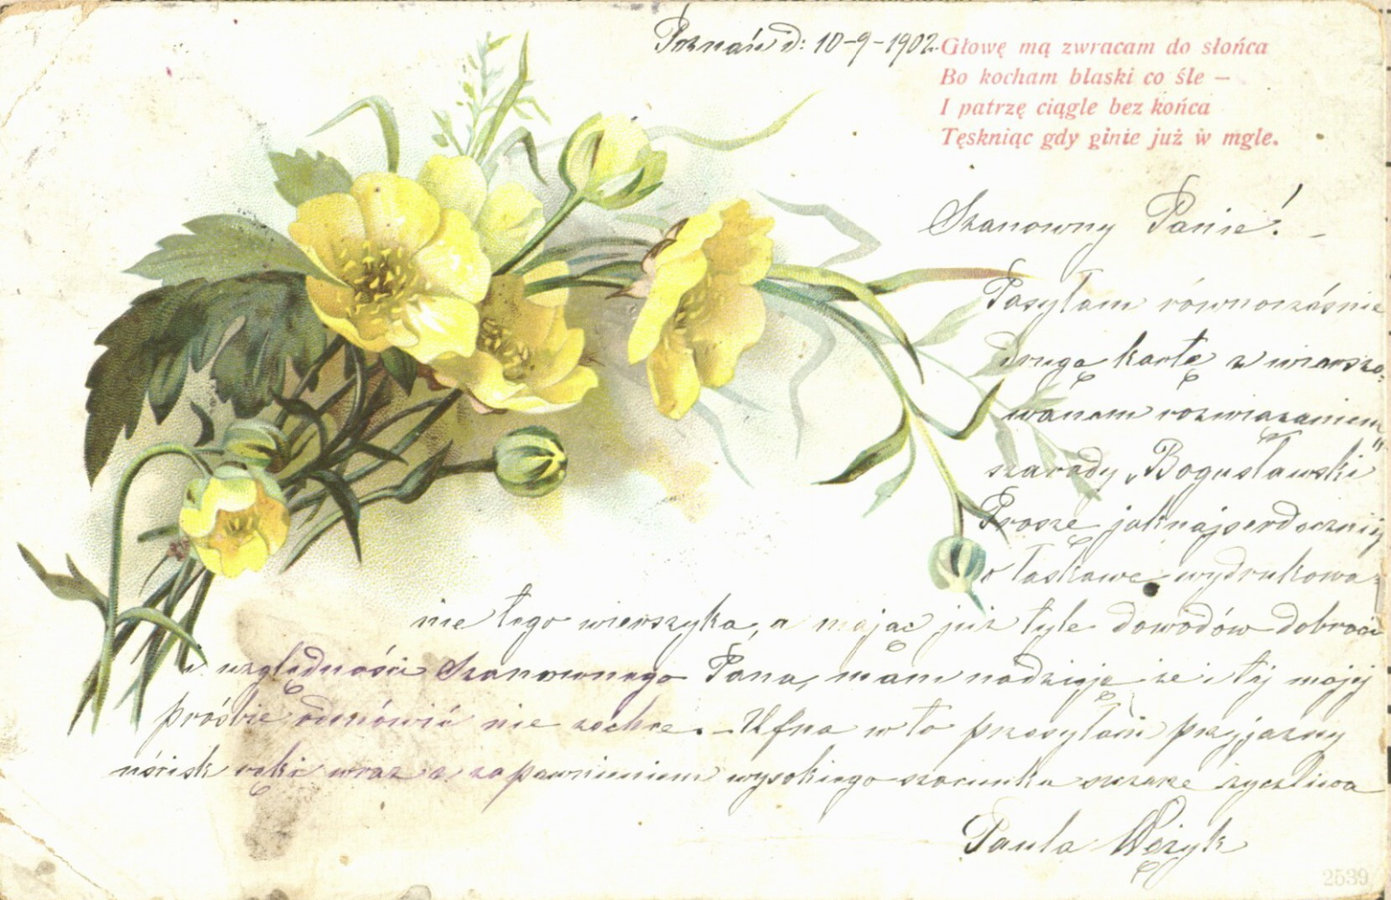 Poznań d: 10-9-1902.
Głowę mą zwracam do słońca
Bo kocham blaski co śle —
I patrzę ciągle bez końca
Tęskniąc gdy ginie już w mgle.
Szanowny Panie!
Posyłam równocześnie
drugą kartę z wierszo-
wanem rozwiązaniem
szarady „Bogusławski"
Proszę jaknajserdeczniej
o łaskawe wydrukowa-
nie tego wierszyka, a mając już tyle dowodów dobroci
i względności Szanownego Pana, mam nadzieję że i tej mojej
prośbie odmówić nie zechce. – Ufna w to przesyłam przyjazny
uścisk ręki wraz z zapewnieniem wysokiego szacunku szczerze życzliwa
Paula Wężyk
2539